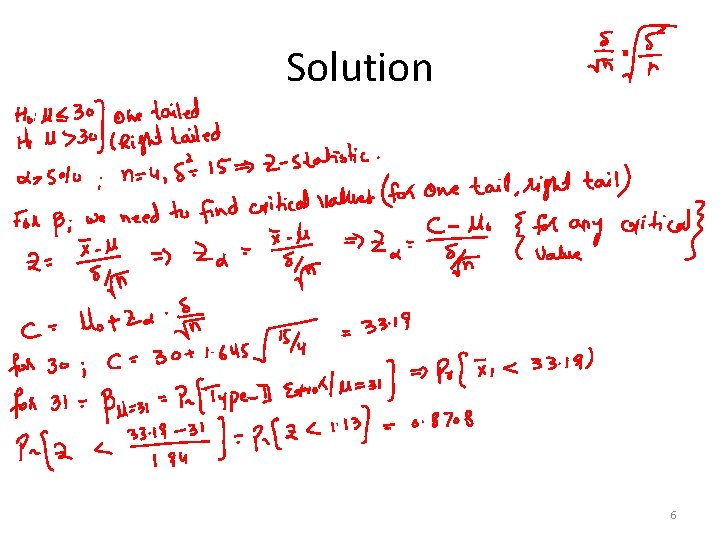 Solution
δ/√n = √(δ²/n)
H₀: μ ≤ 30 } One tailed
H₁ μ > 30 } (Right tailed
α = 5%; n=4, δ² = 15 ⇒ Z-Statistic.
For β; we need to find critical values (for one tail, right tail)
Z = (x̄-μ)/(δ/√n) ⇒ Z_α = (x̄-μ)/(δ/√n) ⇒ Z_α = (C-μ₀)/(δ/√n) { for any critical }
{ value
C = μ₀ + Z_α · δ/√n
for 30; C = 30 + 1.645 √(15/4) = 33.19
for 31 = β_{μ=31} = Pr[Type-II Error/μ=31] ⇒ Pr[x̄₁ < 33.19)
Pr[Z < (33.19-31)/1.94] = Pr[Z < 1.13] = 0.8708
6